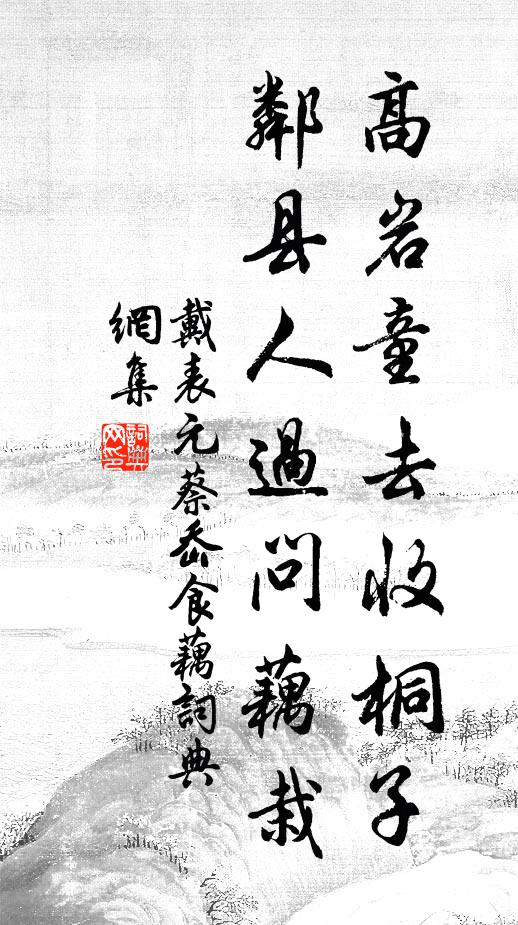 高岩童去收桐子
鄰县人過问藕栽
戴表元蔡岙食藕詞典
網集